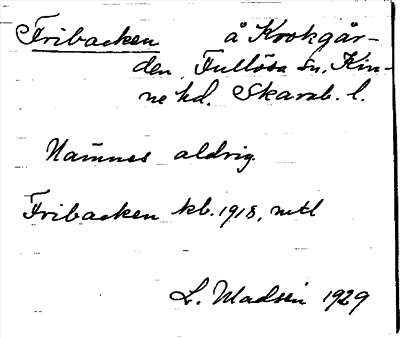 Fribacken å Krokgår-
den, Fullösa sn, Kin-
ne hd. Skarab. l.
Namnes aldrig.
Fribacken kb. 1918, mtl
L. Madsén 1929